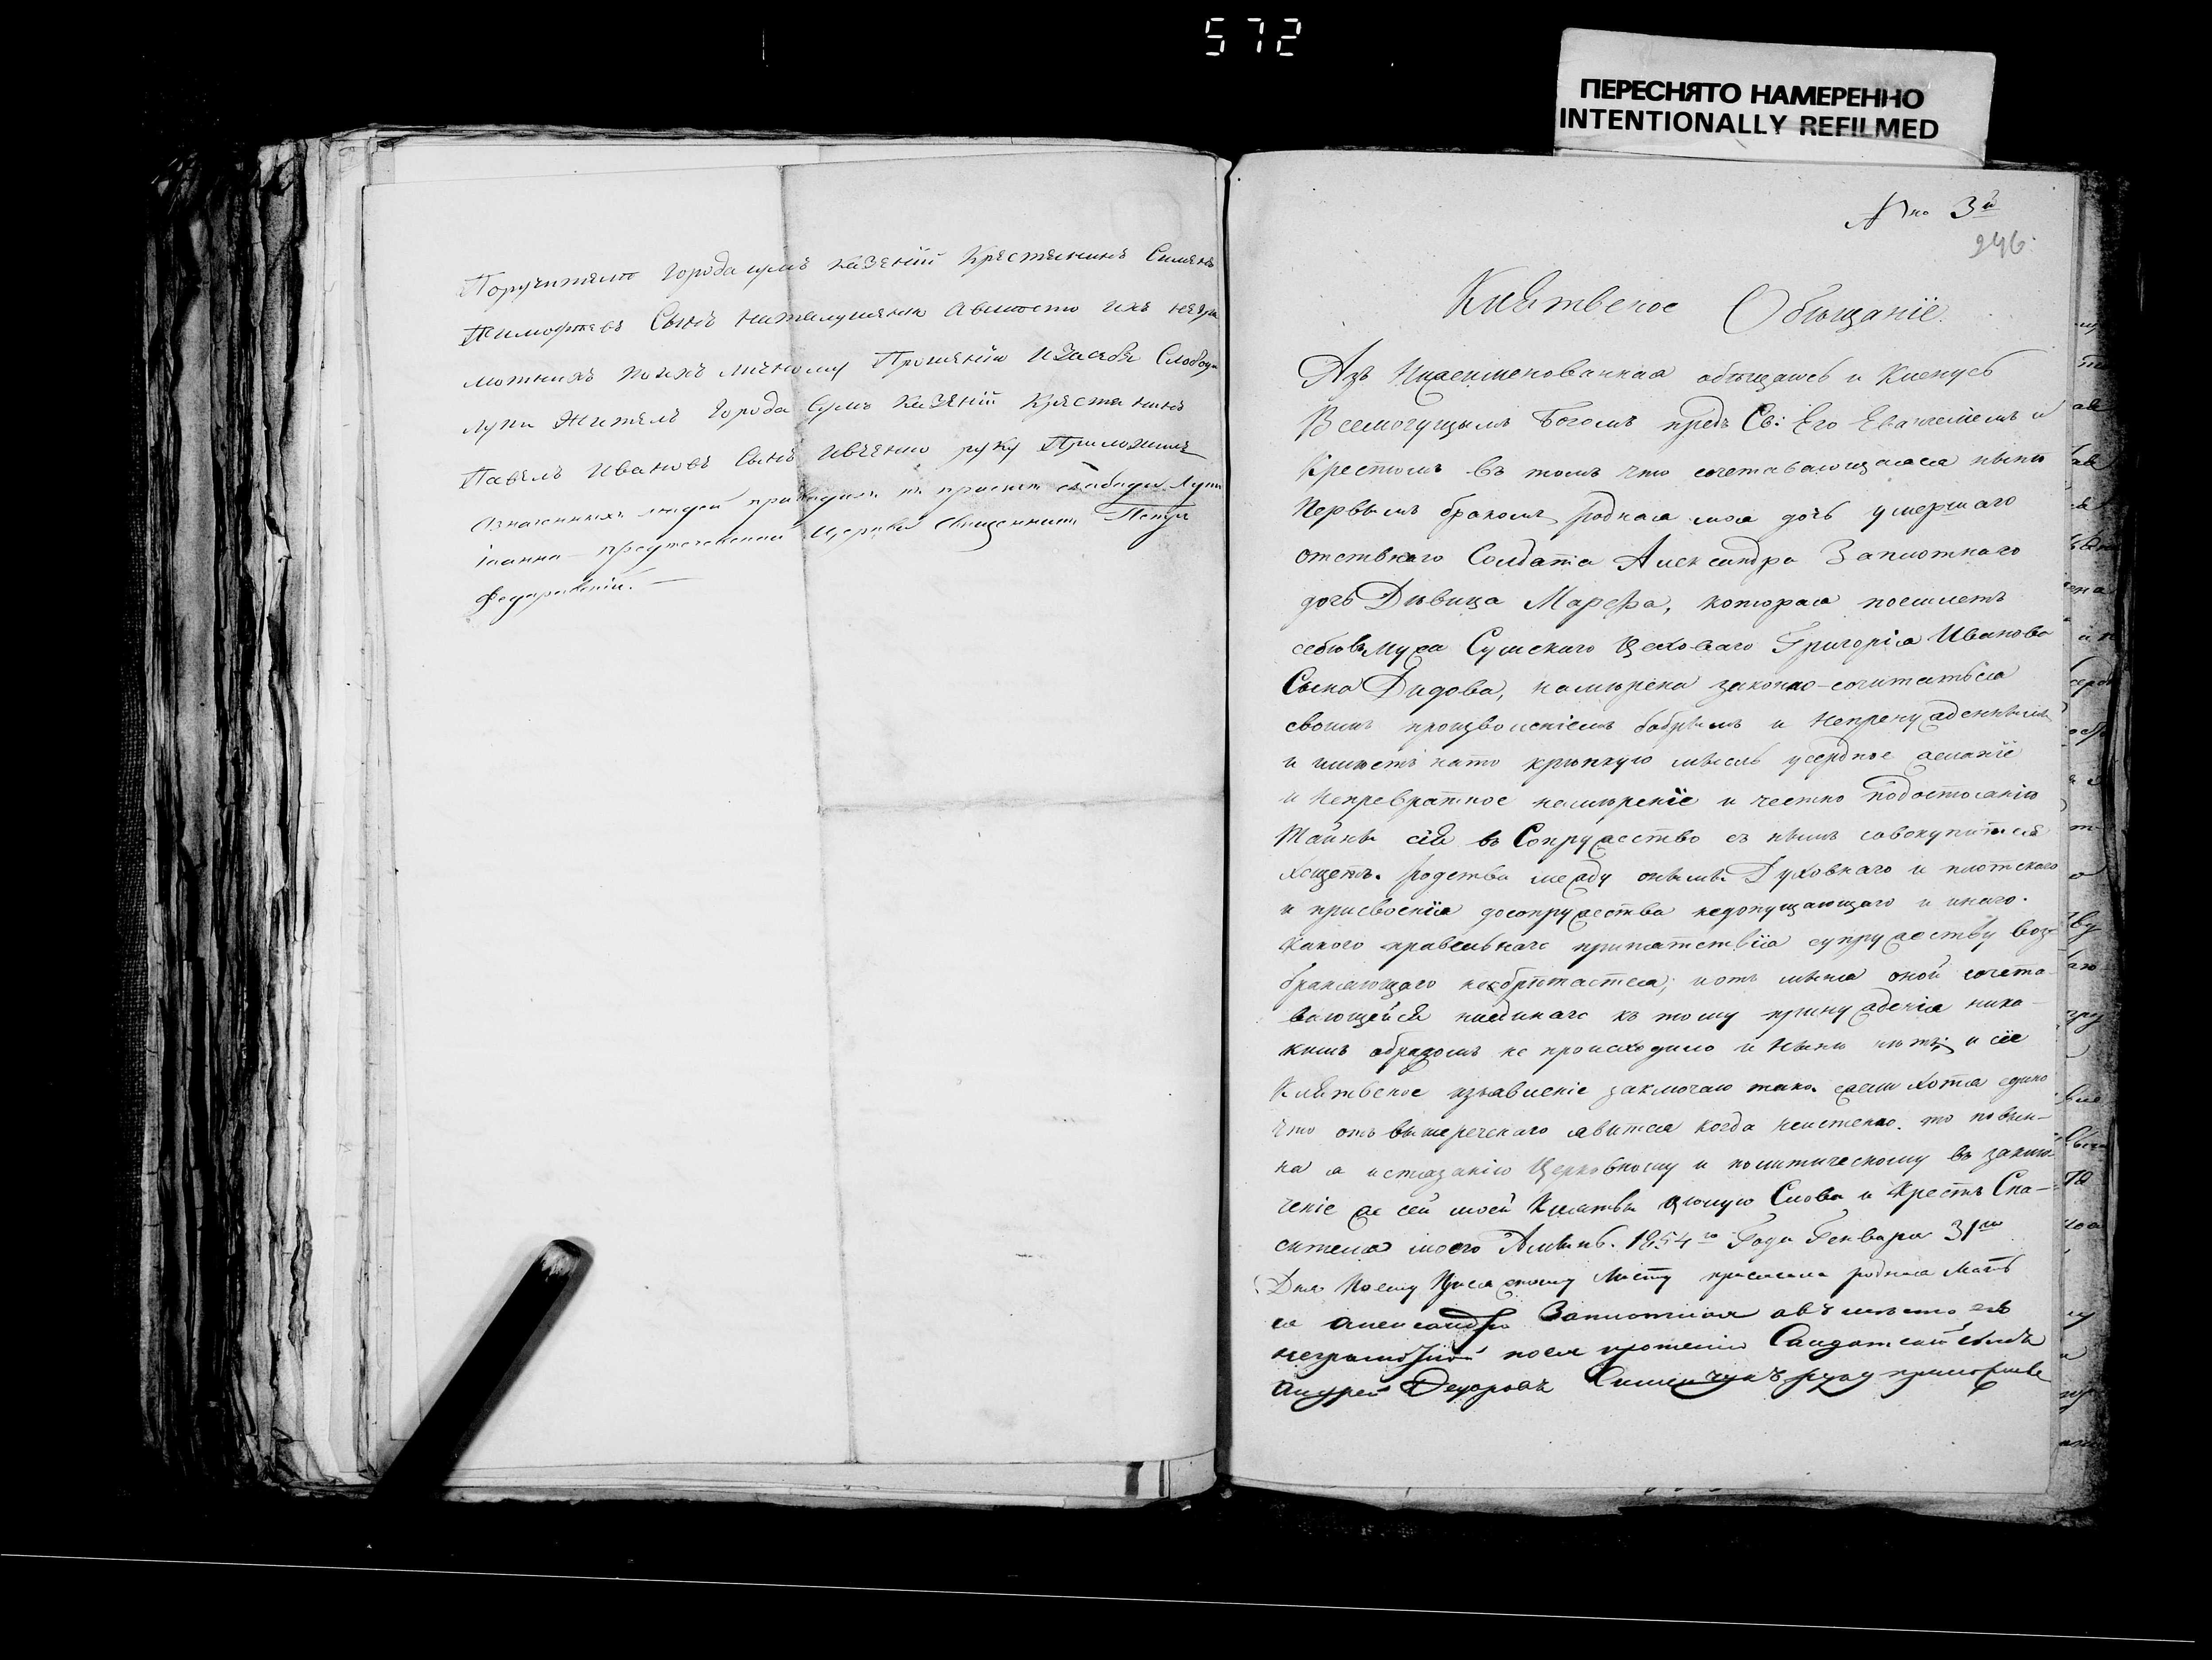 572
ПЕРЕСНЯТО НАМЕРЕННО
INTENTIONALLY REFILMED
Поручители города казеній Крестянинъ Симянъ
Тимофеевъ Сынъ авместо ихъ негра
мотнихъ поихъ личному Прошенію изасебя Слободы
лупи Житель Города Сумъ казеній Крестянинъ
Павелъ Ивановъ Сынъ Ивченко руку Приложилъ
Означенныхъ людей приводилъ слободы
іоанно-предтечевской Церкви Священникъ Петръ
Федоровскій.
№ 3й
246.
Клятвеное Обѣщаніе.
Азъ Нижеименованная обѣщаюсь и Кленусь
Всемогущымъ Богомъ предъ Св: Его Евангелиемъ и
Крестомъ въ томъ что сочетавающаяся нынѣ
Первымъ бракомъ родная моя дочь умершаго
отставнаго Солдата Александра Заплотнаго
дочь Дѣвица Марфа, которая поемлетъ
себѣвъ мужа Сумскаго Цеховаго Григорія Иванова
Сына Дидова, намѣрена законно-сочитаться
своимъ произволеніемъ добрымъ и Непренужденнымъ
и имѣетъ нато крѣпкую мысль усердное желаніе
и Непревратное намѣреніе и честно подостоянію
Тайны сія въ Сопружество съ нымъ совокупитися
хощетъ. родства между оными Духовнаго и плотскаго
и присвоенія досопружества недопущающаго и инаго.
какого правельнаго припятствія супружеству воз-
браняющаго необрѣтается; иотъ мѣня оной сочета-
вающейся ниединаго къ тому принужденія ника-
кимъ образомъ не происходило и Нынѣ нѣтъ; и сіе
Клятвеное изъявленіе заключаю тако. ежели хотя едино
что отъ вышереченаго явится когда неистенно. то повин-
на я истязанію Церковному и политическому въ заклю-
ченіе же сей моей Клятвы цѣлую Слова и Крестъ Спа-
сителя моего Аминь. 1854го Года Генваря 31го
Дня Ксему Присяжному Листу присягала родная Мать
ея Александра Заплотная авъ мѣсто ея
неграмотной поея прошенію Салдатскій сынъ
Андрей Федоровъ руку приложилъ